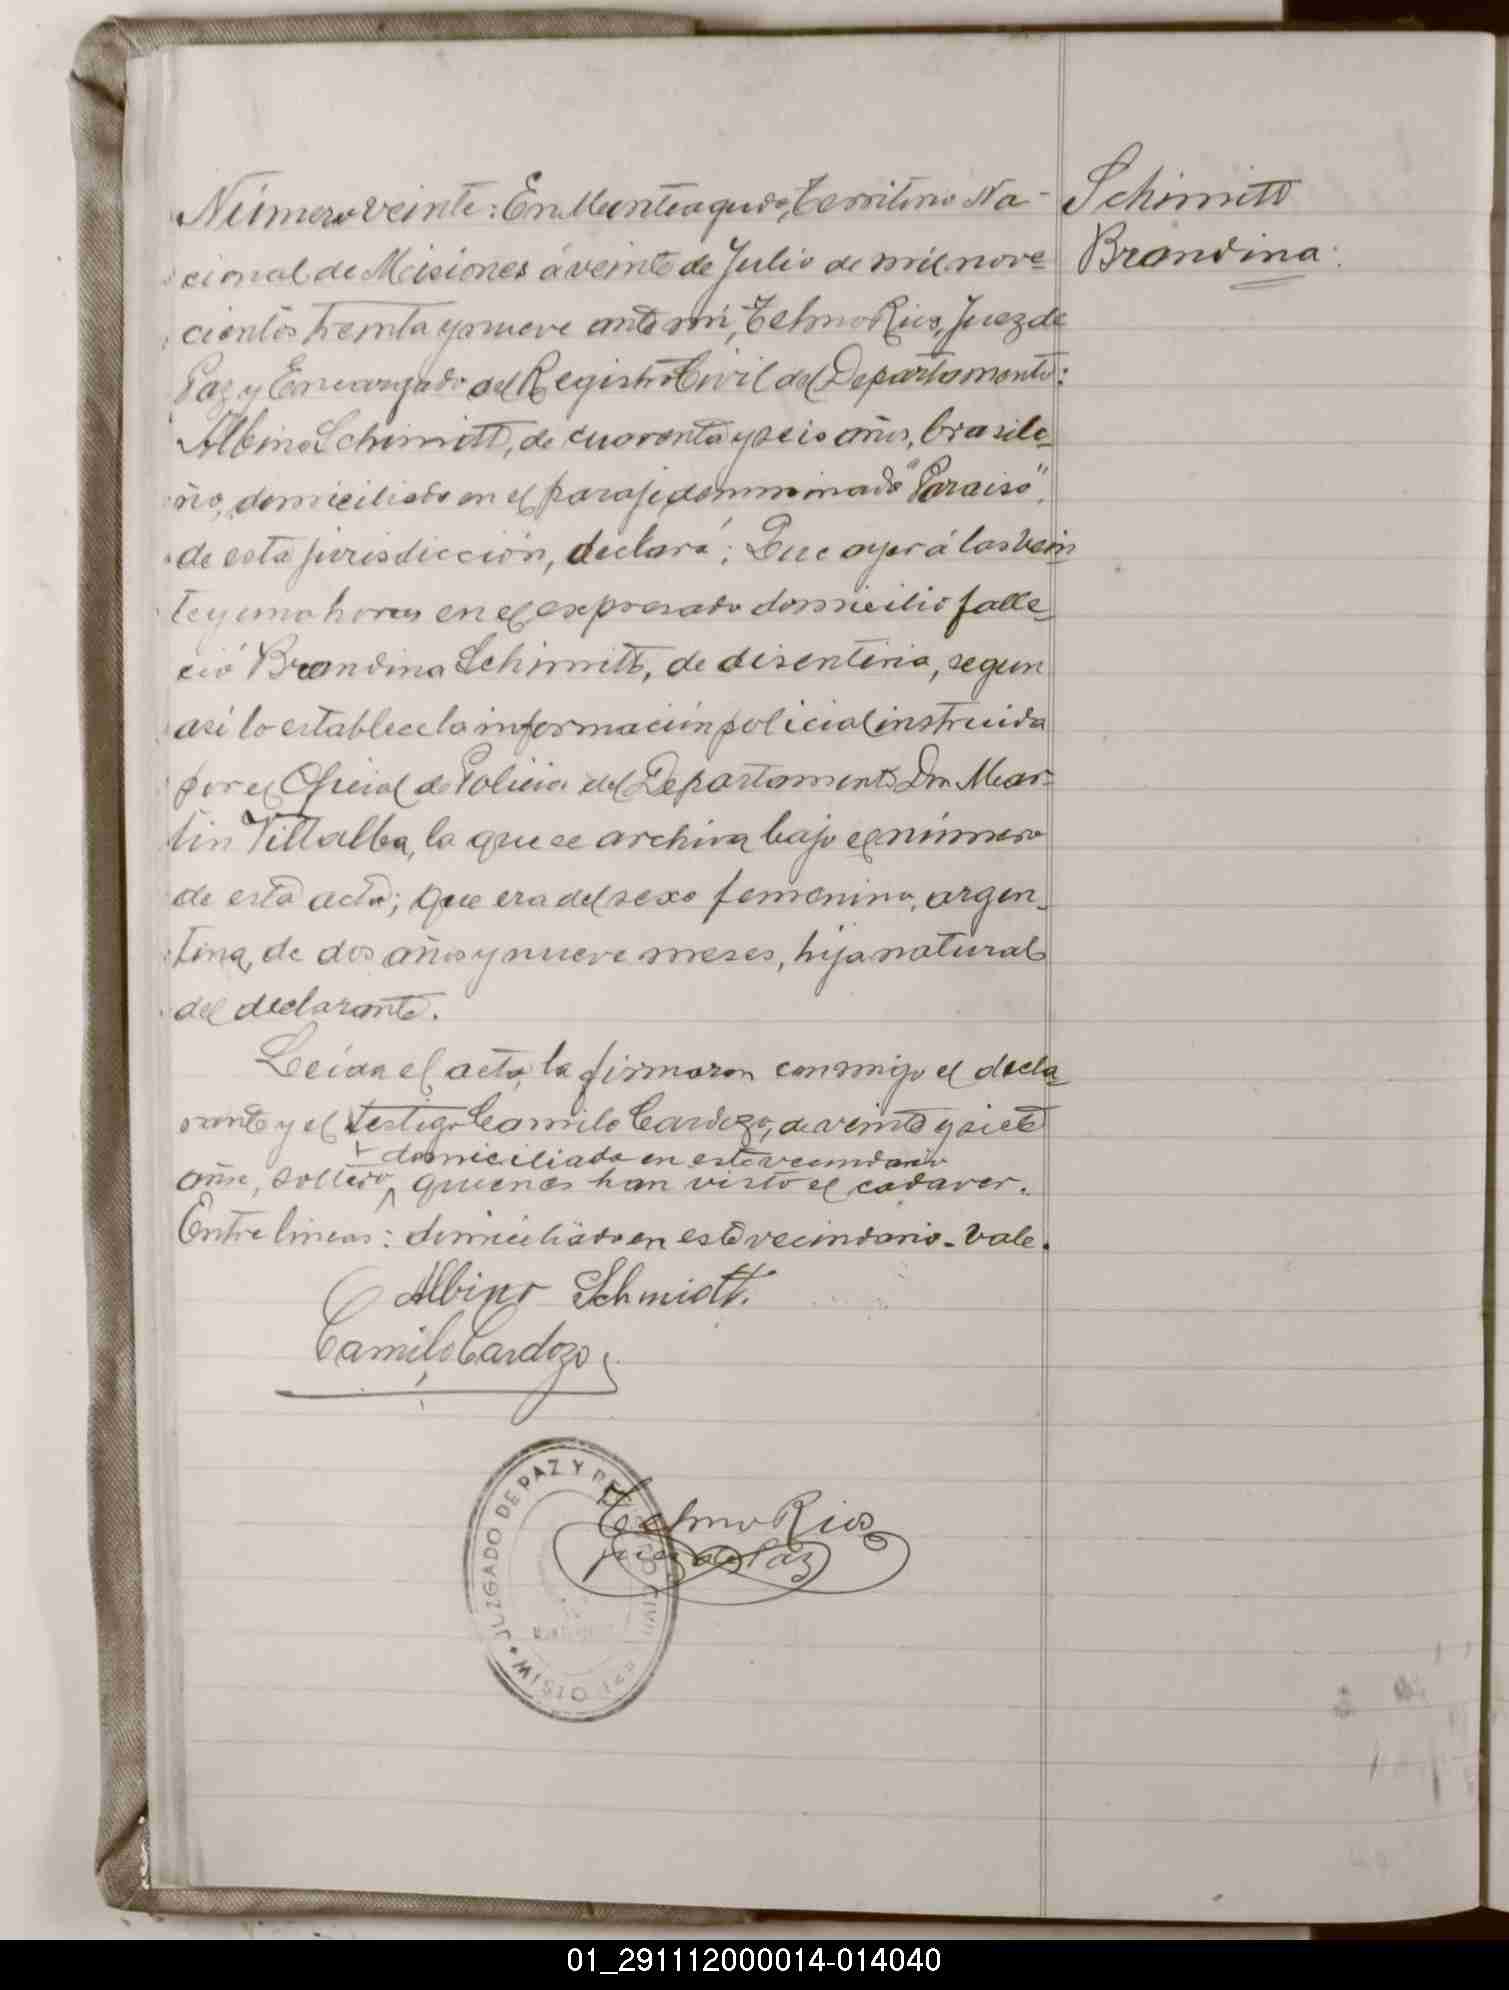 Número veinte: En Monteagudo, Territorio Na-
cional de Misiones á veinte de Julio de mil nove-
cientos treinta y nueve ante mi, Telmo Rios, Juez de
Paz y Encargado del Registro Civil del Departamento:
Albino Schimitt, de cuarenta y seis años, brasile-
ño, domiciliado en el paraje denominado "Paraiso",
de esta jurisdicción, declará: Que ayer á las vein
te y una horas en el expresado domicilio falle-
ció Brandina Schimitt, de disenteria, segun
así lo establece la información policial instruida
por el Oficial de Policia del Departamento Don Mar-
tin Villalba, la que se archiva bajo el número
de esta acta; que era del sexo femenino, argen-
tina, de dos años y nueve meses, hija natural
del declarante.
Leída el acta, la firmaron conmigo el decla-
rante y el testigo Camilo Cardozo, de veinte y siete
domiciliado en este vecindario
años, soltero, quienes han visto el cadaver.
Entre lineas: domiciliado en este vecindario - Vale.
Albino Schmidt.
Camilo Cardozo
Telmo Rios
Juez de Paz
JUZGADO DE PAZ Y REGISTRO CIVIL
Schimitt
Brandina:
01_291112000014-014040